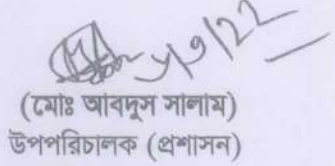 (মোঃ আবদুস সালাম)
উপপরিচালক (প্রশাসন)